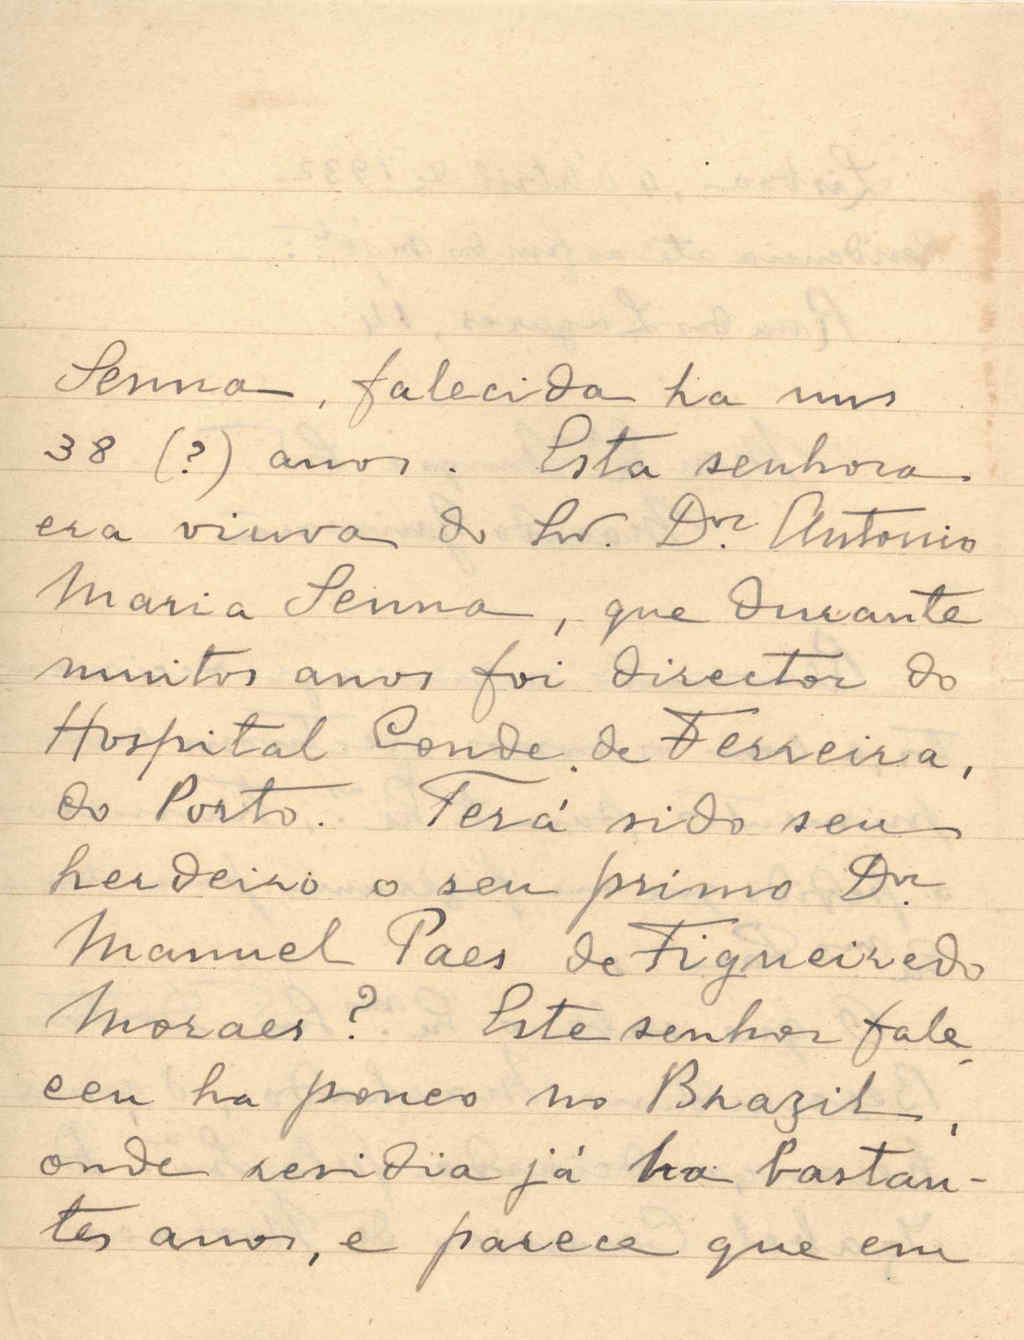 Senna, falecida ha uns
38 (?) anos. Esta senhora
era viuva do Snr. Dr. Antonio
Maria Senna, que durante
muitos anos foi director do
Hospital Conde de Ferreira,
do Porto. Terá sido seu
herdeiro o seu primo Dr.
Manuel Paes de Figueiredo
Moraes? Este senhor fale-
ceu ha pouco no Brazil,
onde residia já ha bastan-
tes anos, e parece que em